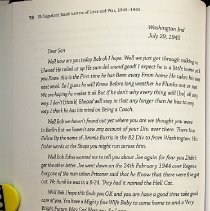 78 Copeland Book Letters of Love and War, 1943-1945
Washington Ind
July 29, 1945
Dear Son
Well how are you today Bob ok I hope. Well we just got through talking to
Elwood He called us up He sure did sound good I expect he is a lonely home sick
boy. This is the first time he has been away From home He takes his leg
next week. So I guess he will know Before long weather he Flunks out or not
We are hoping he makes it ok But if he don't why every thing will be ok
way. I don't Elwood will stay in that any longer than he has to any
way. I think he has his mind on Being a Coach.
Well Bob we haven't found out yet where you are we thought you were
in Berlin But we haven't saw any account of your Div over there. There has
Follow By the name of Jimmy Burris is the 82 Div to from Washington. His
Sister works at the Shops you might run across him.
Well Bob Edna wanted me to tell you about Joe again for fear you Didn't
get the other letter. Joe went down on the 24th February 1944 over Regens
burg one of the men taken Prisoner said that he Know that there were for got
out. He Sunk he was in a B-24. They had it named the Hell Cat.
Well Bob I hope this finds you OK and you are have a good time take good
care of you. You have a Mighty fine Wife Baby to come home to and a Very
Bright Future